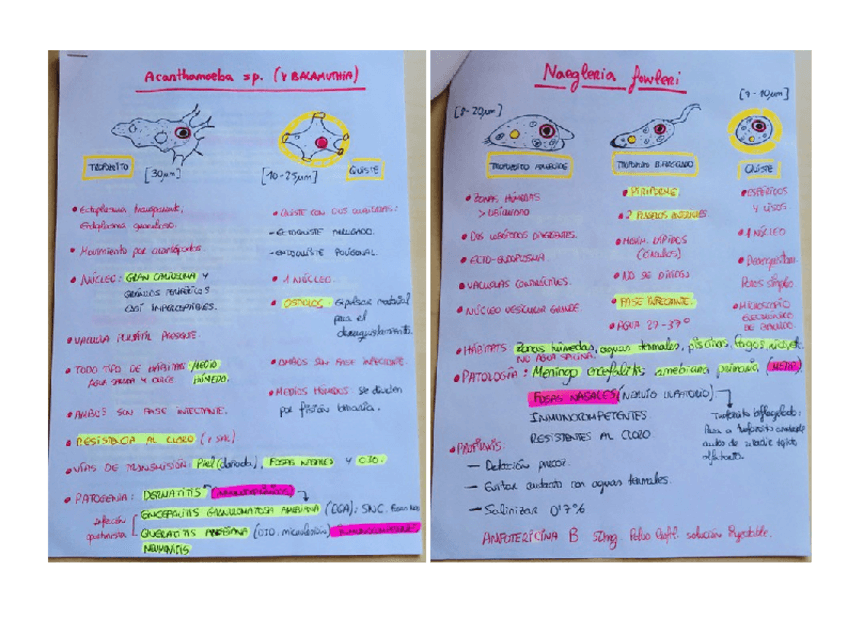 Acanthamoeba sp. (Y BALAMUTHIA)
TROFOZOITO
[30µm]
[10-25µm]
QUISTE
• Ectoplasma transparente.
Ectoplasma granuloso.
• Movimiento por acantópodos.
• NÚCLEO: GRAN CARIOSOMA Y
GRÁNULOS PERIFÉRICOS
CASI IMPERCEPTIBLES.
• VACUOLA PULSÁTIL PRESENTE.
• TODO TIPO DE HÁBITATS MEDIO
AGUA SALADA Y DULCE HÚMEDO.
• AMBOS SON FASE INFECTANTE.
• RESISTENCIA AL CLORO (Y SAL)
• VÍAS DE TRANSMISIÓN: Piel (dañada), FOSAS NASALES Y OJO.
• PATOGENIA: DERMATITIS
infección
oportunista
ENCEFALITIS GRANULOMATOSA AMEBIANA (EGA): SNC.
QUERATITIS AMEBIANA (OJO. microlesión)
NEUMONITIS
• QUISTE CON DOS CUBIERTAS:
- ECTOQUISTE ARRUGADO.
- ENDOQUISTE POLIGONAL.
• 1 NÚCLEO.
• OSTIOLOS: expulsar material
para el
desenquistamiento.
• AMBOS SON FASE INFECTANTE.
• MEDIOS HÚMEDOS: se dividen
por fisión binaria.
Naegleria fowleri
[8-20µm]
[7-10µm]
TROFOZOITO AMEBOIDE
TROFOZOITO BIFLAGELADO
QUISTE
• ZONAS HÚMEDAS
• DOS LOBÓPODOS DIVERGENTES.
• ECTO-ENDOPLASMA.
• VACUOLAS CONTRÁCTILES.
• NÚCLEO VESICULAR GRANDE.
• PIRIFORME
• 2 FLAGELOS ANTERIORES.
• MOVIM. RÁPIDOS
(Círculos)
• NO SE DIVIDEN
• FASE INFECTANTE.
• AGUA 27-37º
• ESFÉRIDOS
Y LISOS.
• 1 NÚCLEO
• Desenquistam.
Poros simples
• MICROSCOPIO
ELECTRÓNICO
DE BARRIDO.
• HÁBITATS: Zonas húmedas, aguas termales, piscinas, lagos
NO AGUA SALINA.
• PATOLOGÍA: Meningo encefalitis amebiana primaria (MEAP)
FOSAS NASALES (NERVIO OLFATORIO)
INMUNOCOMPETENTES
RESISTENTES AL CLORO
Trofozoito biflagelado:
Pasa a trofozoito ameboide
antes de
olfatorio.
— Detección precoz.
— Evitar contacto con aguas termales.
— Salinizar 0'7%
ANFOTERICINA B 50mg. Polvo solución inyectable.